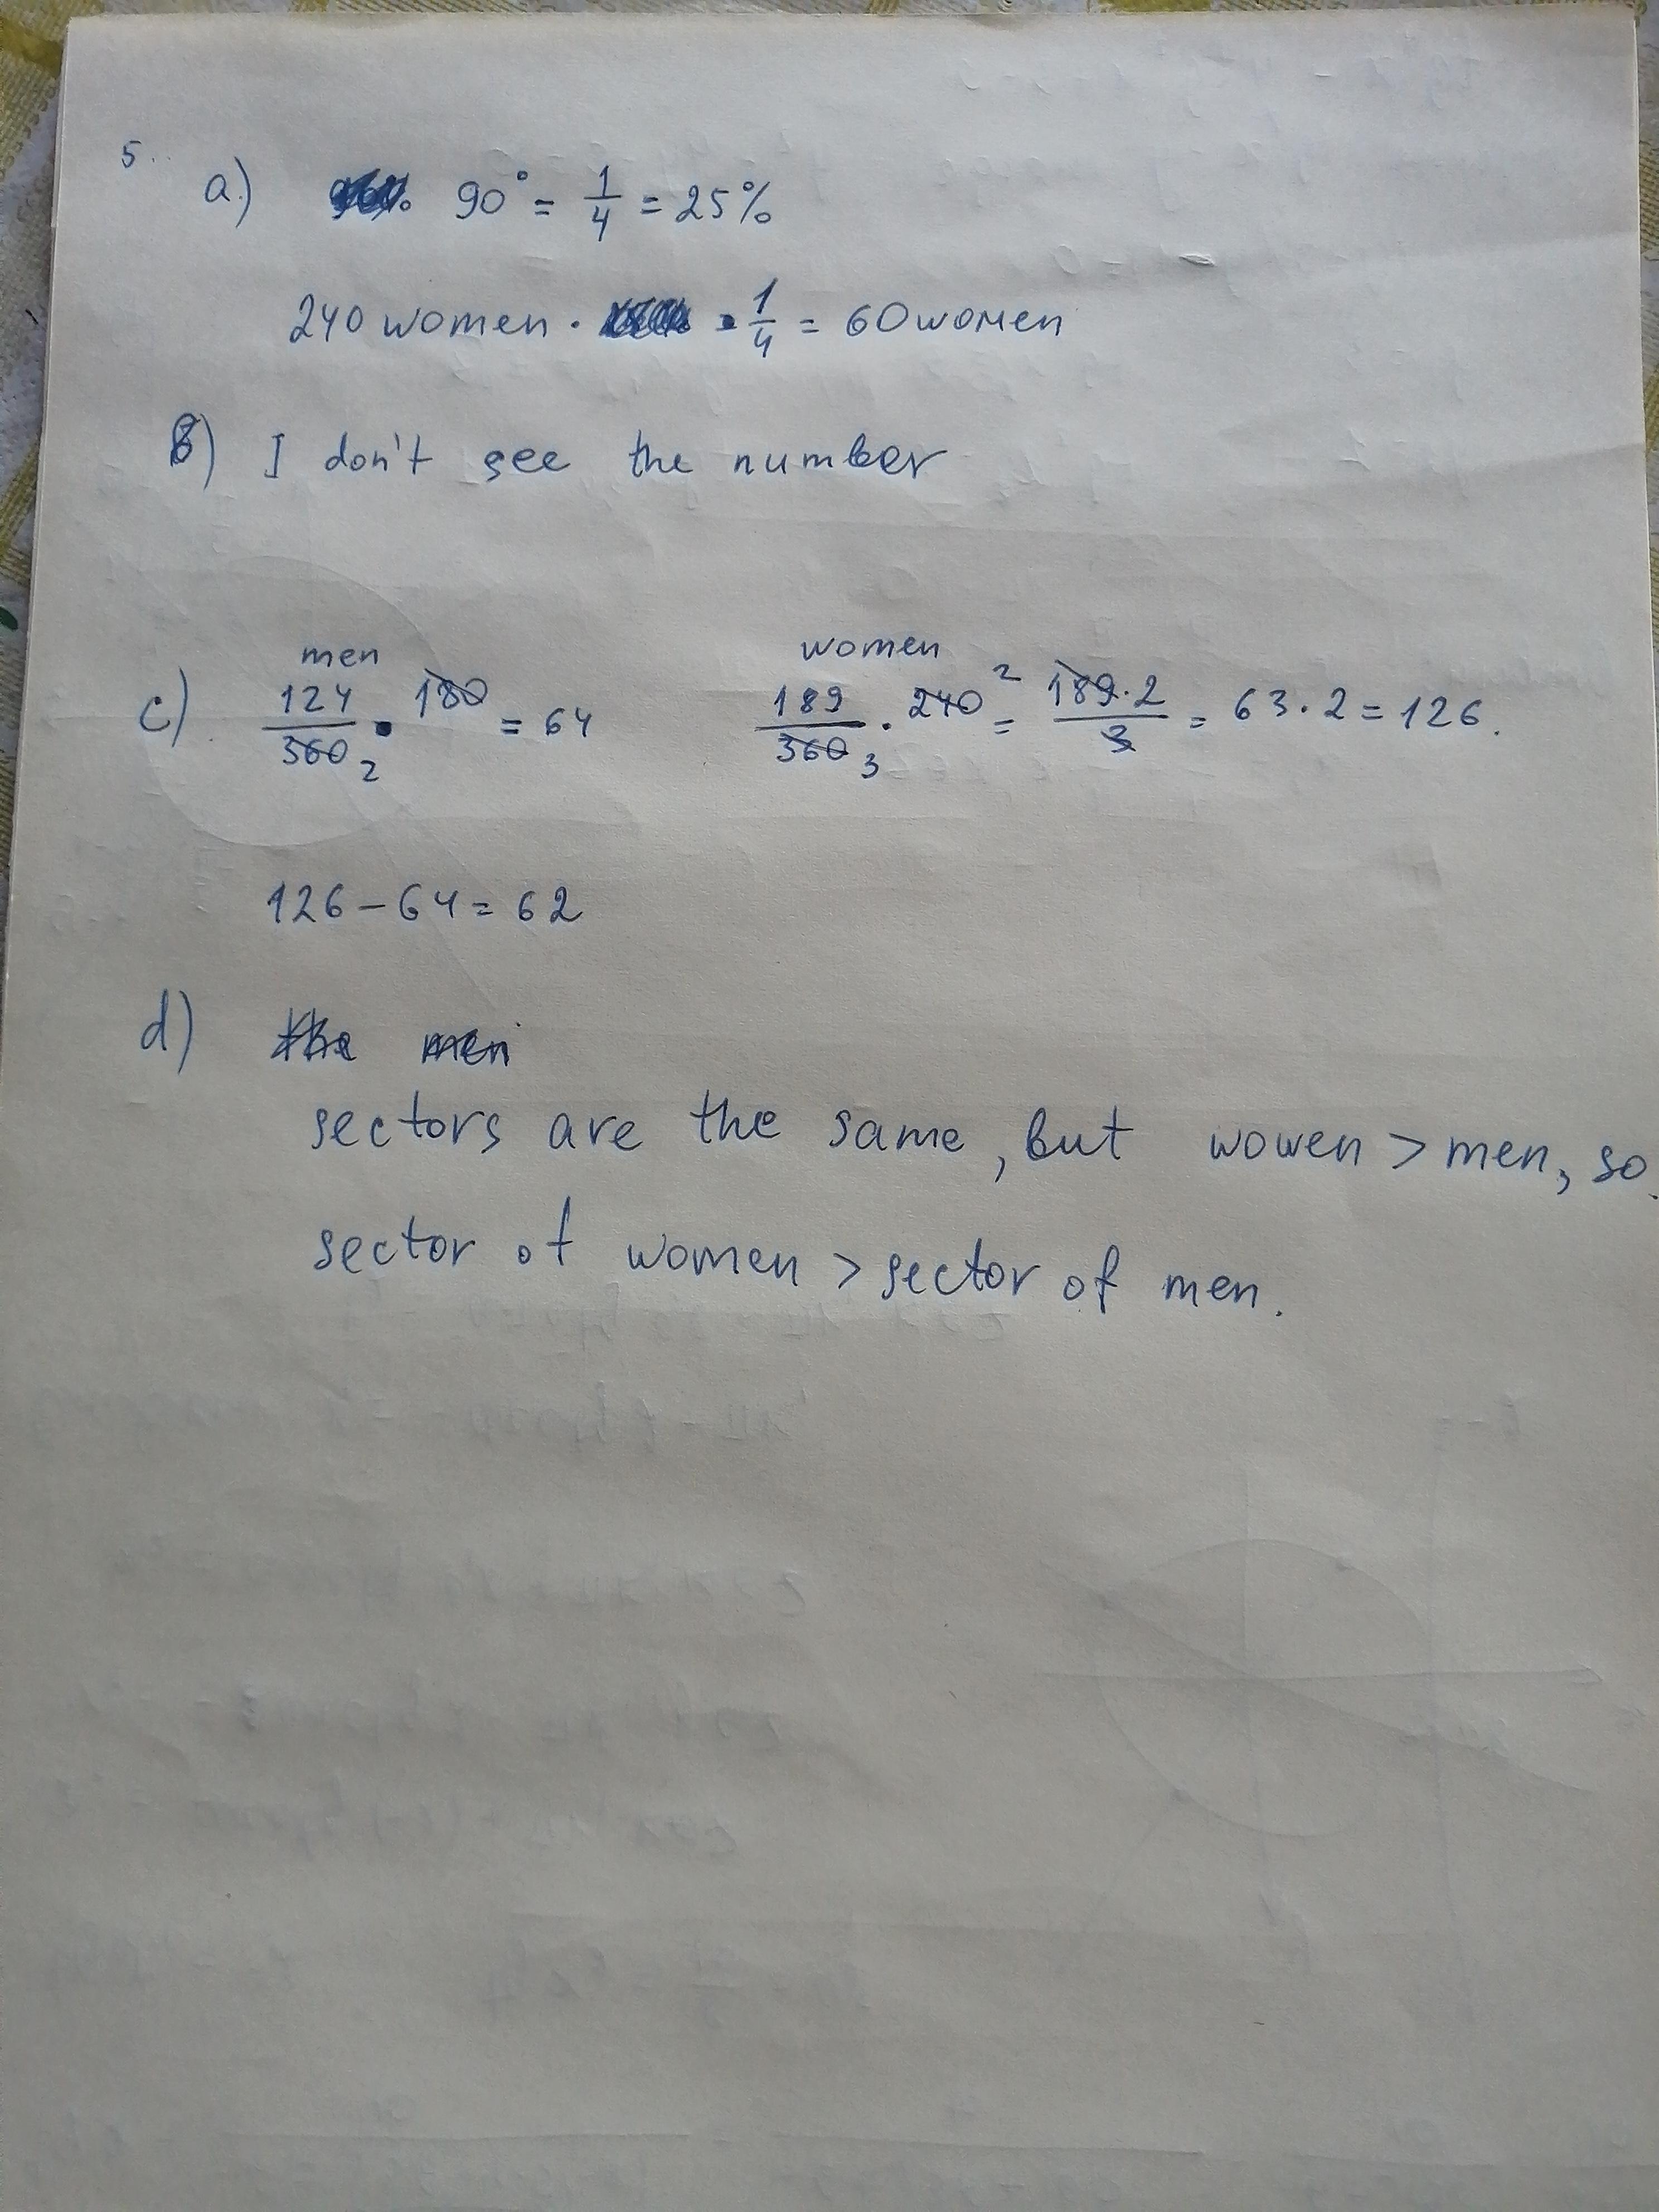 5.
a.) 90° = 1/4 = 25%
240 women · · 1/4 = 60 women
b) I don't see the number
men women
c) 124/360 2 · 180 = 64 189/360 3 · 240 2 = 189·2/3 = 63·2 = 126.
126 - 64 = 62
d) the men
sectors are the same, but wowen > men, so
sector of women > sector of men.